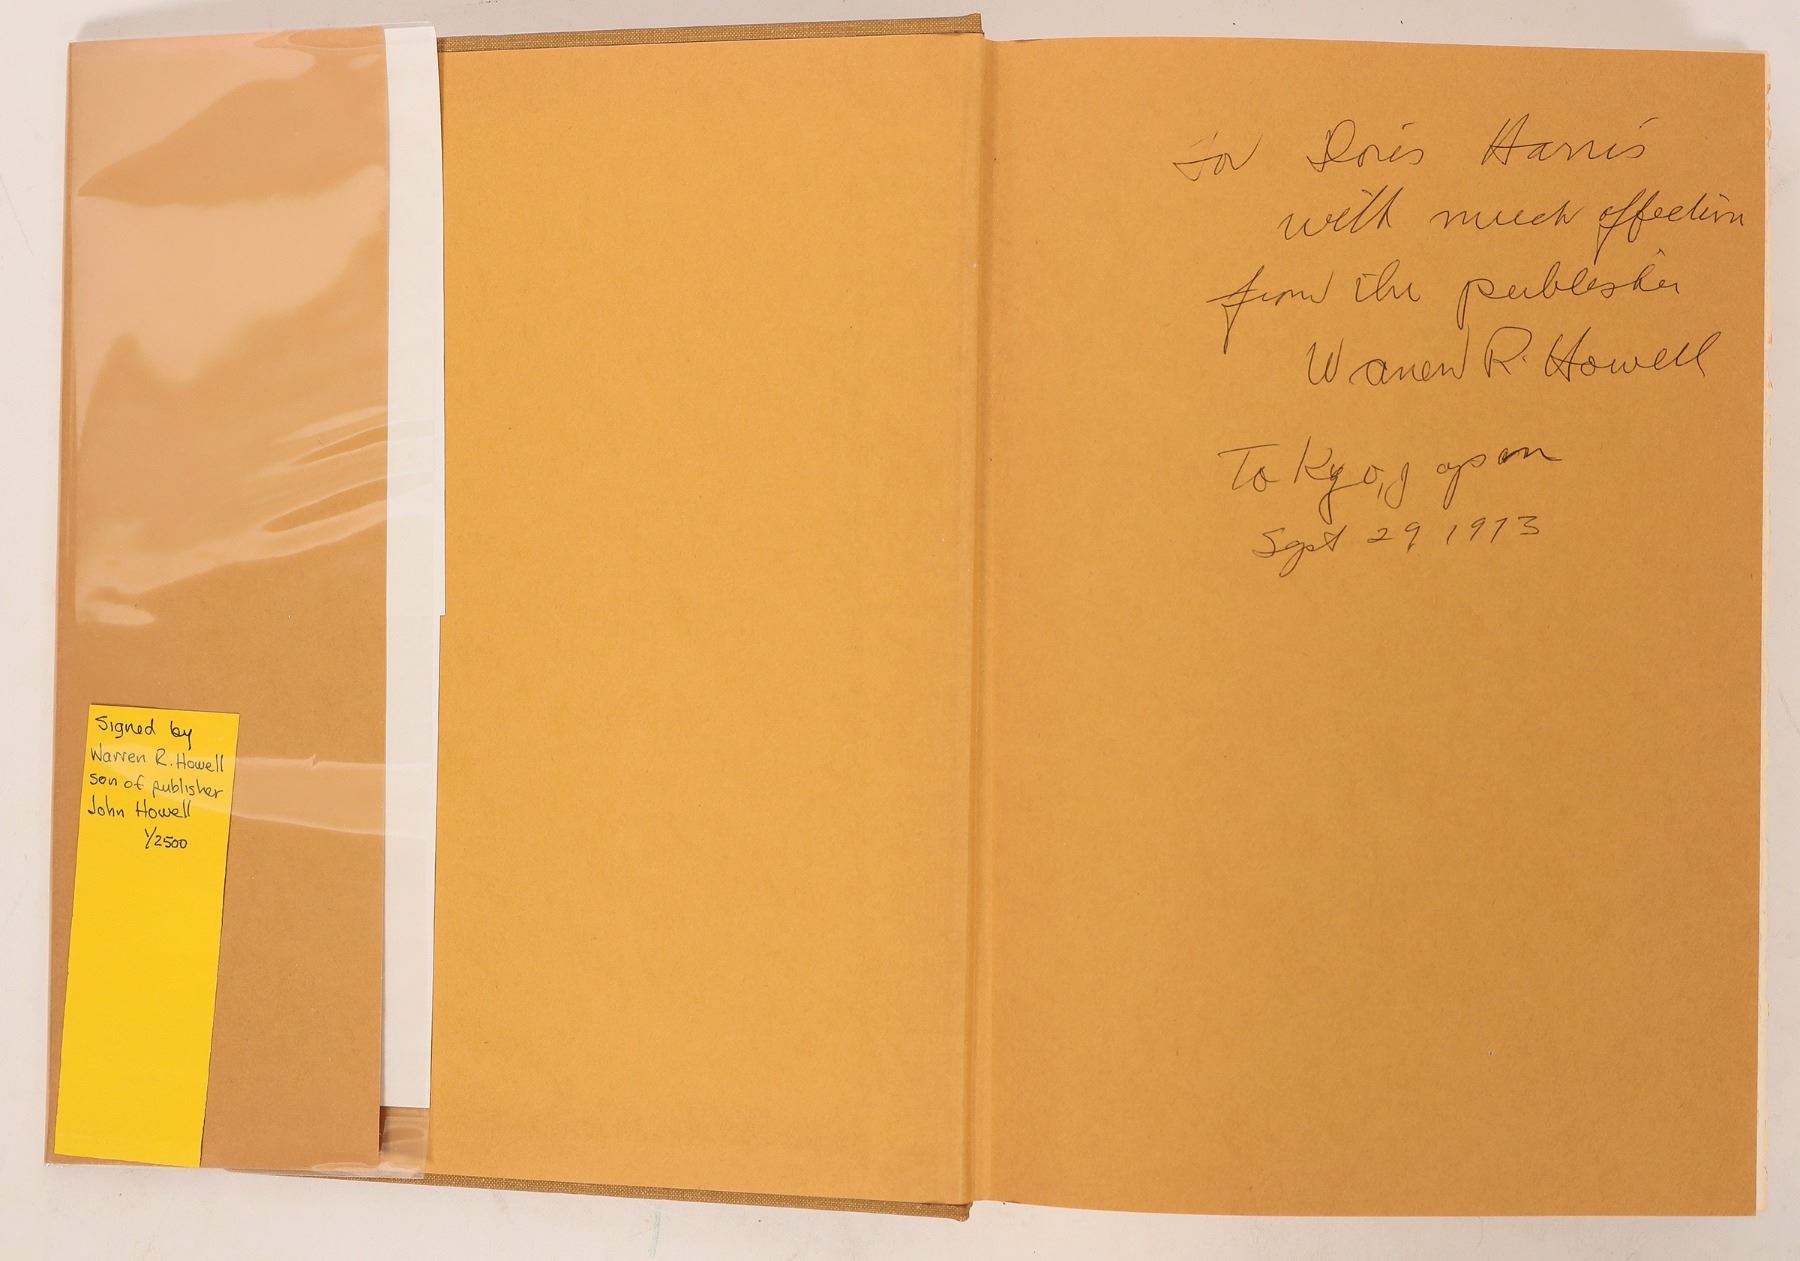 Signed by
Warren R. Howell
son of publisher
John Howell
1/2500
for Doris Harris
with much affection
from the publisher
Warren R. Howell
Tokyo, Japan
Sept 29 1973